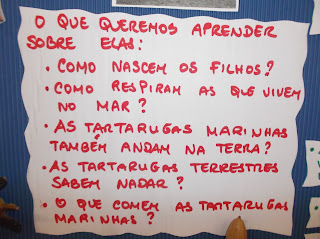 O QUE QUEREMOS APRENDER
SOBRE ELAS:
• COMO NASCEM OS FILHOS?
• COMO RESPIRAM AS QUE VIVEM
NO MAR?
• AS TARTARUGAS MARINHAS
TAMBÉM ANDAM NA TERRA?
• AS TARTARUGAS TERRESTRES
SABEM NADAR?
• O QUE COMEM AS TARTARUGAS
MARINHAS?